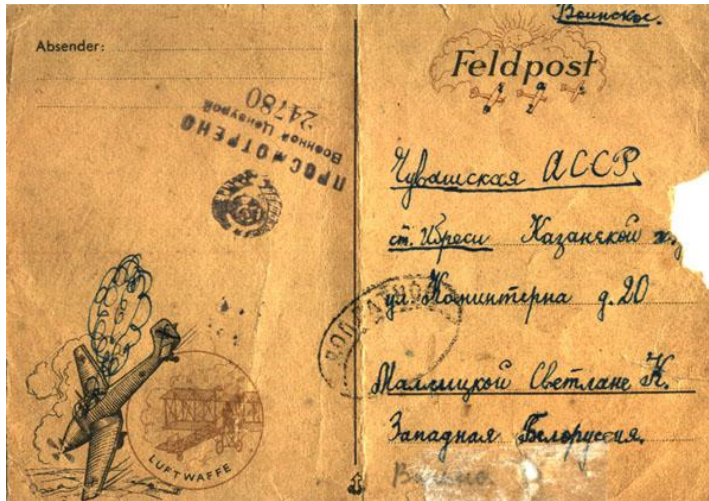 Absender:
ПРОСМОТРЕНО
Военной Цензурой
24780
LUFTWAFFE
Воинское.
Feldpost
Чувашская АССР,
ст. Ибреси Казанской ж.
ул. Коминтерна д. 20
Светлане К.
Западная Белоруссия.